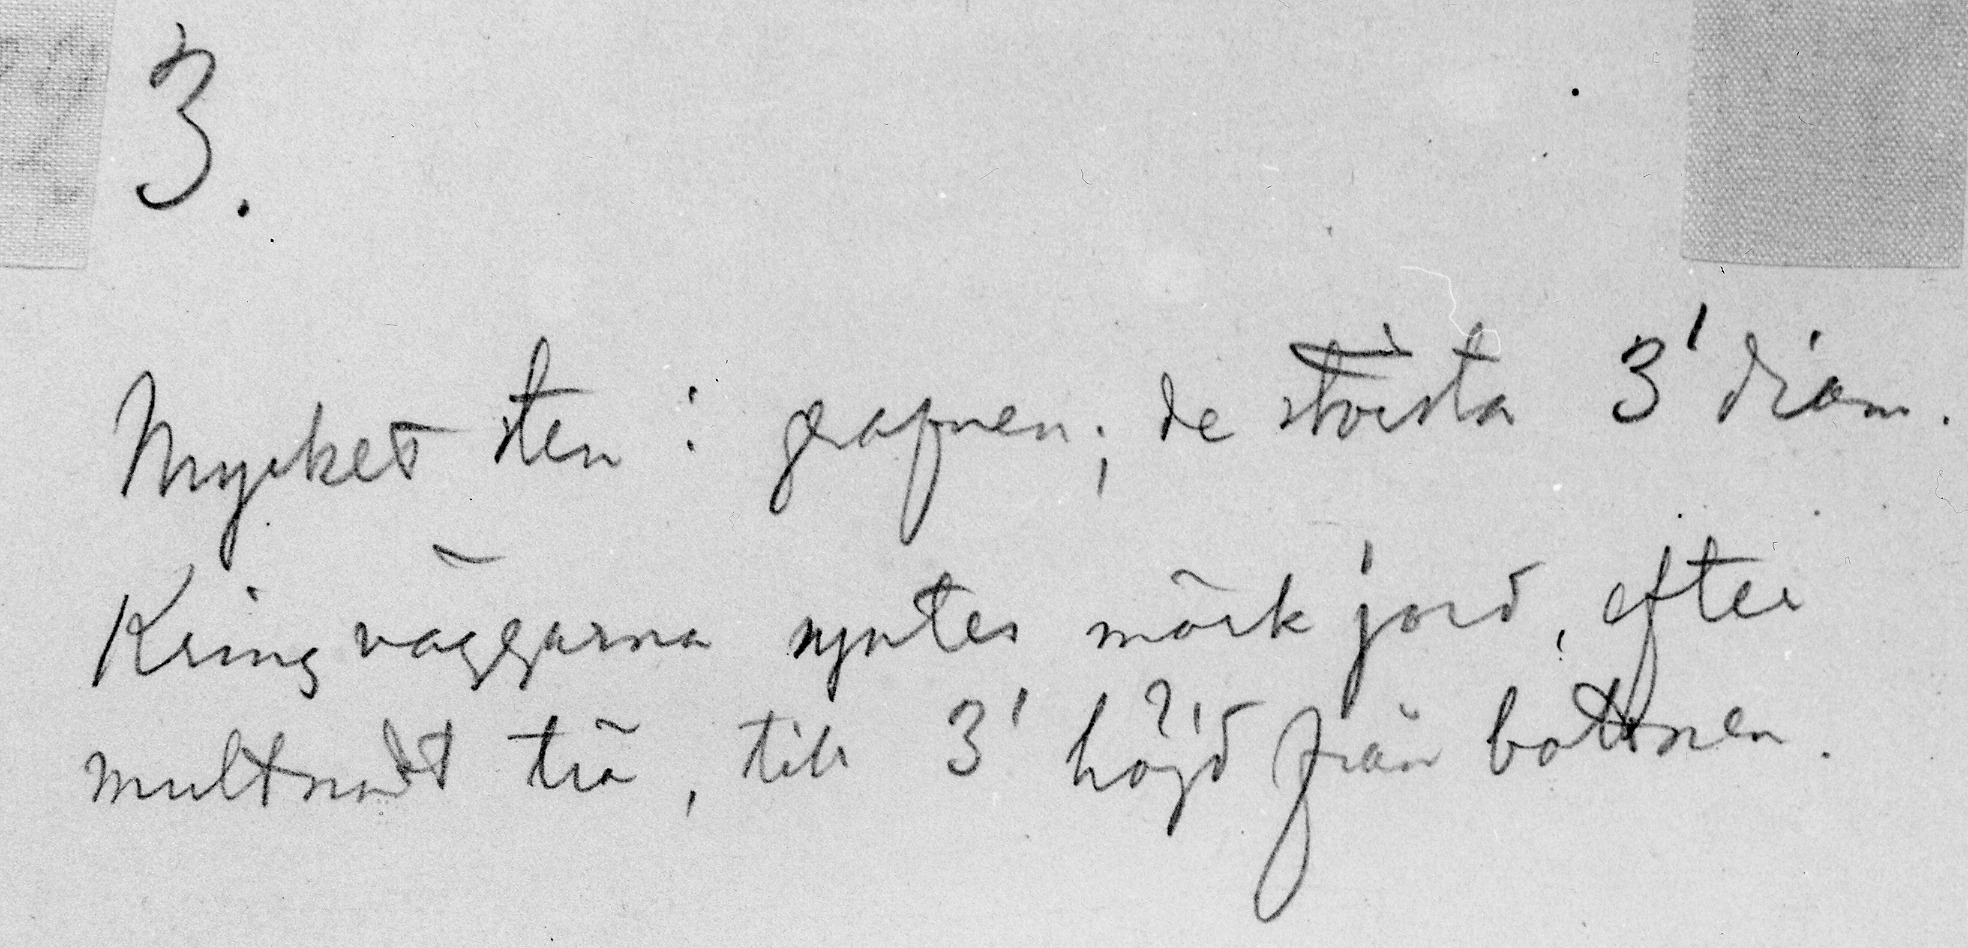 3.
Mycket sten i grafven; de största 3' diam.
Kring väggarna syntes mörk jord, efter
multnadt trä, till 3' höjd från bottnen.